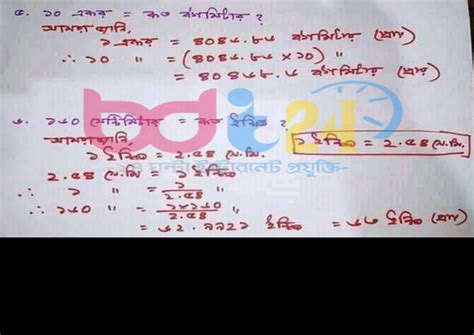 ৫. ১০ একর = কত বর্গমিটার ?
আমরা জানি,
১ একর = ৪০৪৬.৮৬ বর্গমিটার (প্রায়)
∴ ১০ " = (৪০৪৬.৮৬ × ১০) "
= ৪০৪৬৮.৬ বর্গমিটার (প্রায়)
৬. ১৬০ সেন্টিমিটার = কত ইঞ্চি ?
আমরা জানি,
১ ইঞ্চি = ২.৫৪ সে.মি.
১ ইঞ্চি = ২.৫৪ সে.মি.
২.৫৪ সে.মি = ১ ইঞ্চি
∴ ১ " = ১/২.৫৪
∴ ১৬০ " = ১×১৬০/২.৫৪
= ৬২.৯৯২১ ইঞ্চি = ৬৩ ইঞ্চি (প্রায়)
bdi24
ইন্টারনেট প্রযুক্তি-